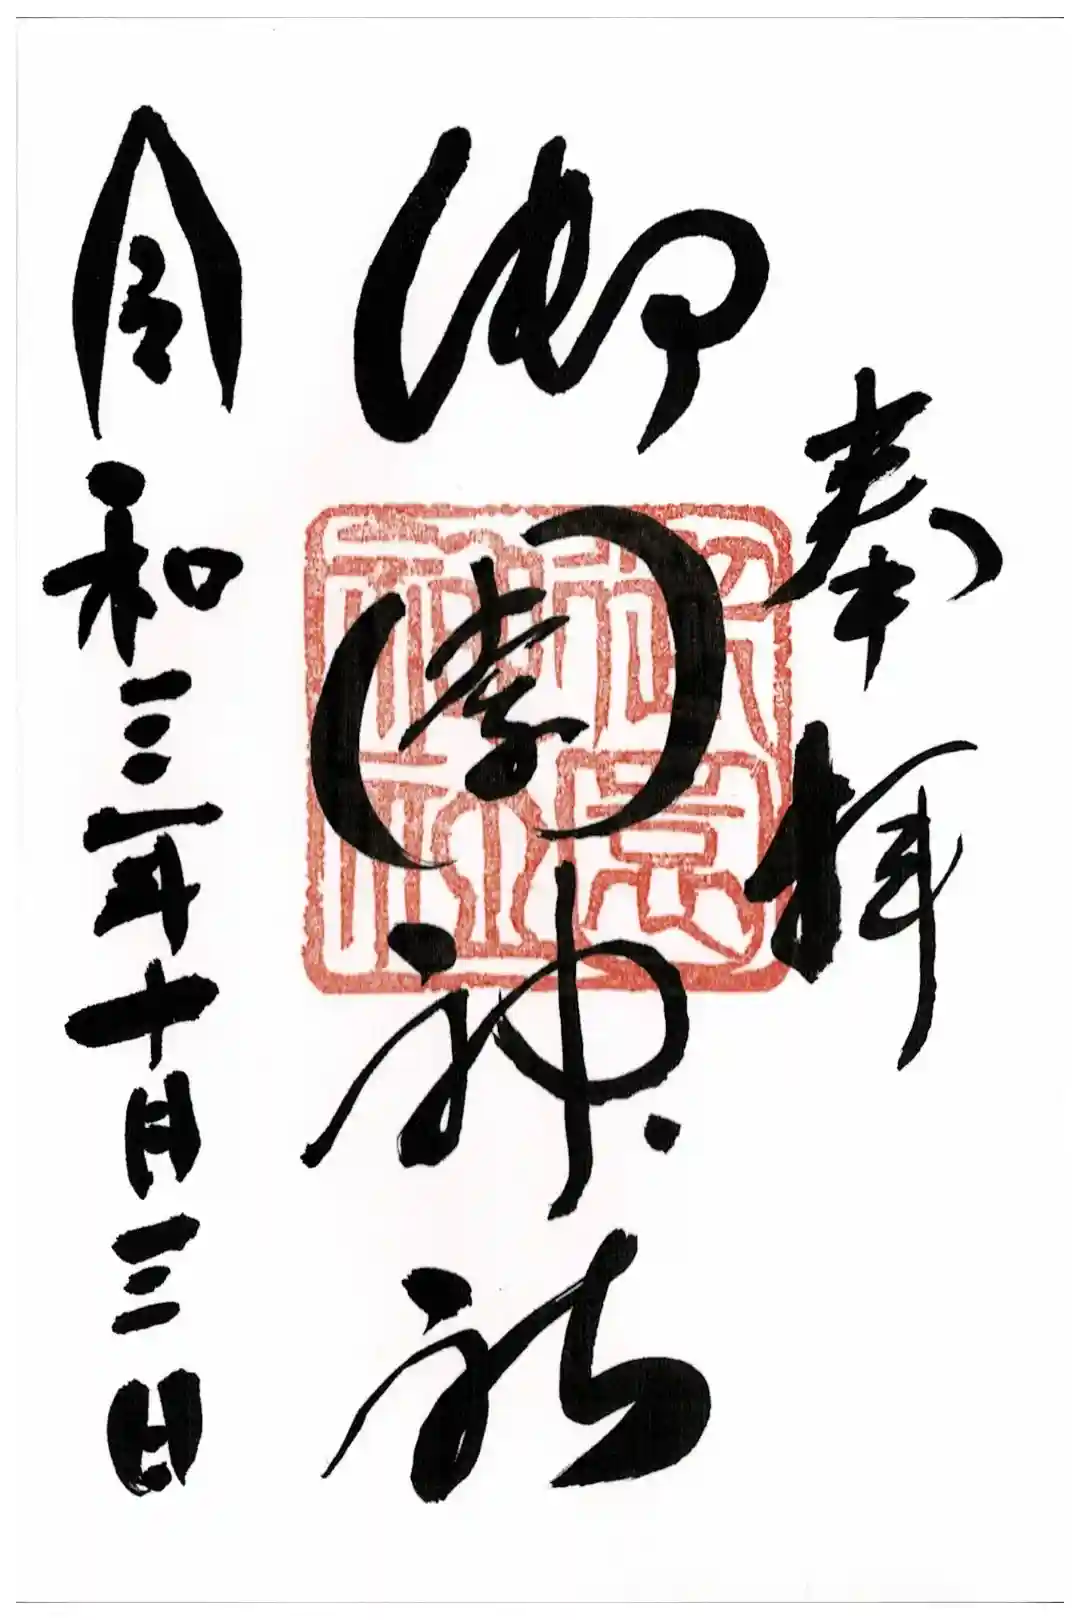 奉拝
御園神社
令和三年十月三日
神社